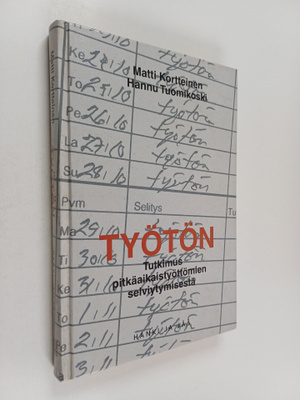 Matti Kortteinen
Hannu Tuomikoski
Ke 24/10 työtön
To 25/10 työtön
Pe 26/10 työtön
La 27/10 työtön
Su 28/10 työtön
Pvm Selitys Tu
Ma 29/10 työtön
TYÖTÖN
Ti 30/10 työtön
Tutkimus
pitkäaikaistyöttömien
selviytymisestä
Ke 31/10 työtön
To 1/11 työtön
2/11 työtön
3/11 työtön